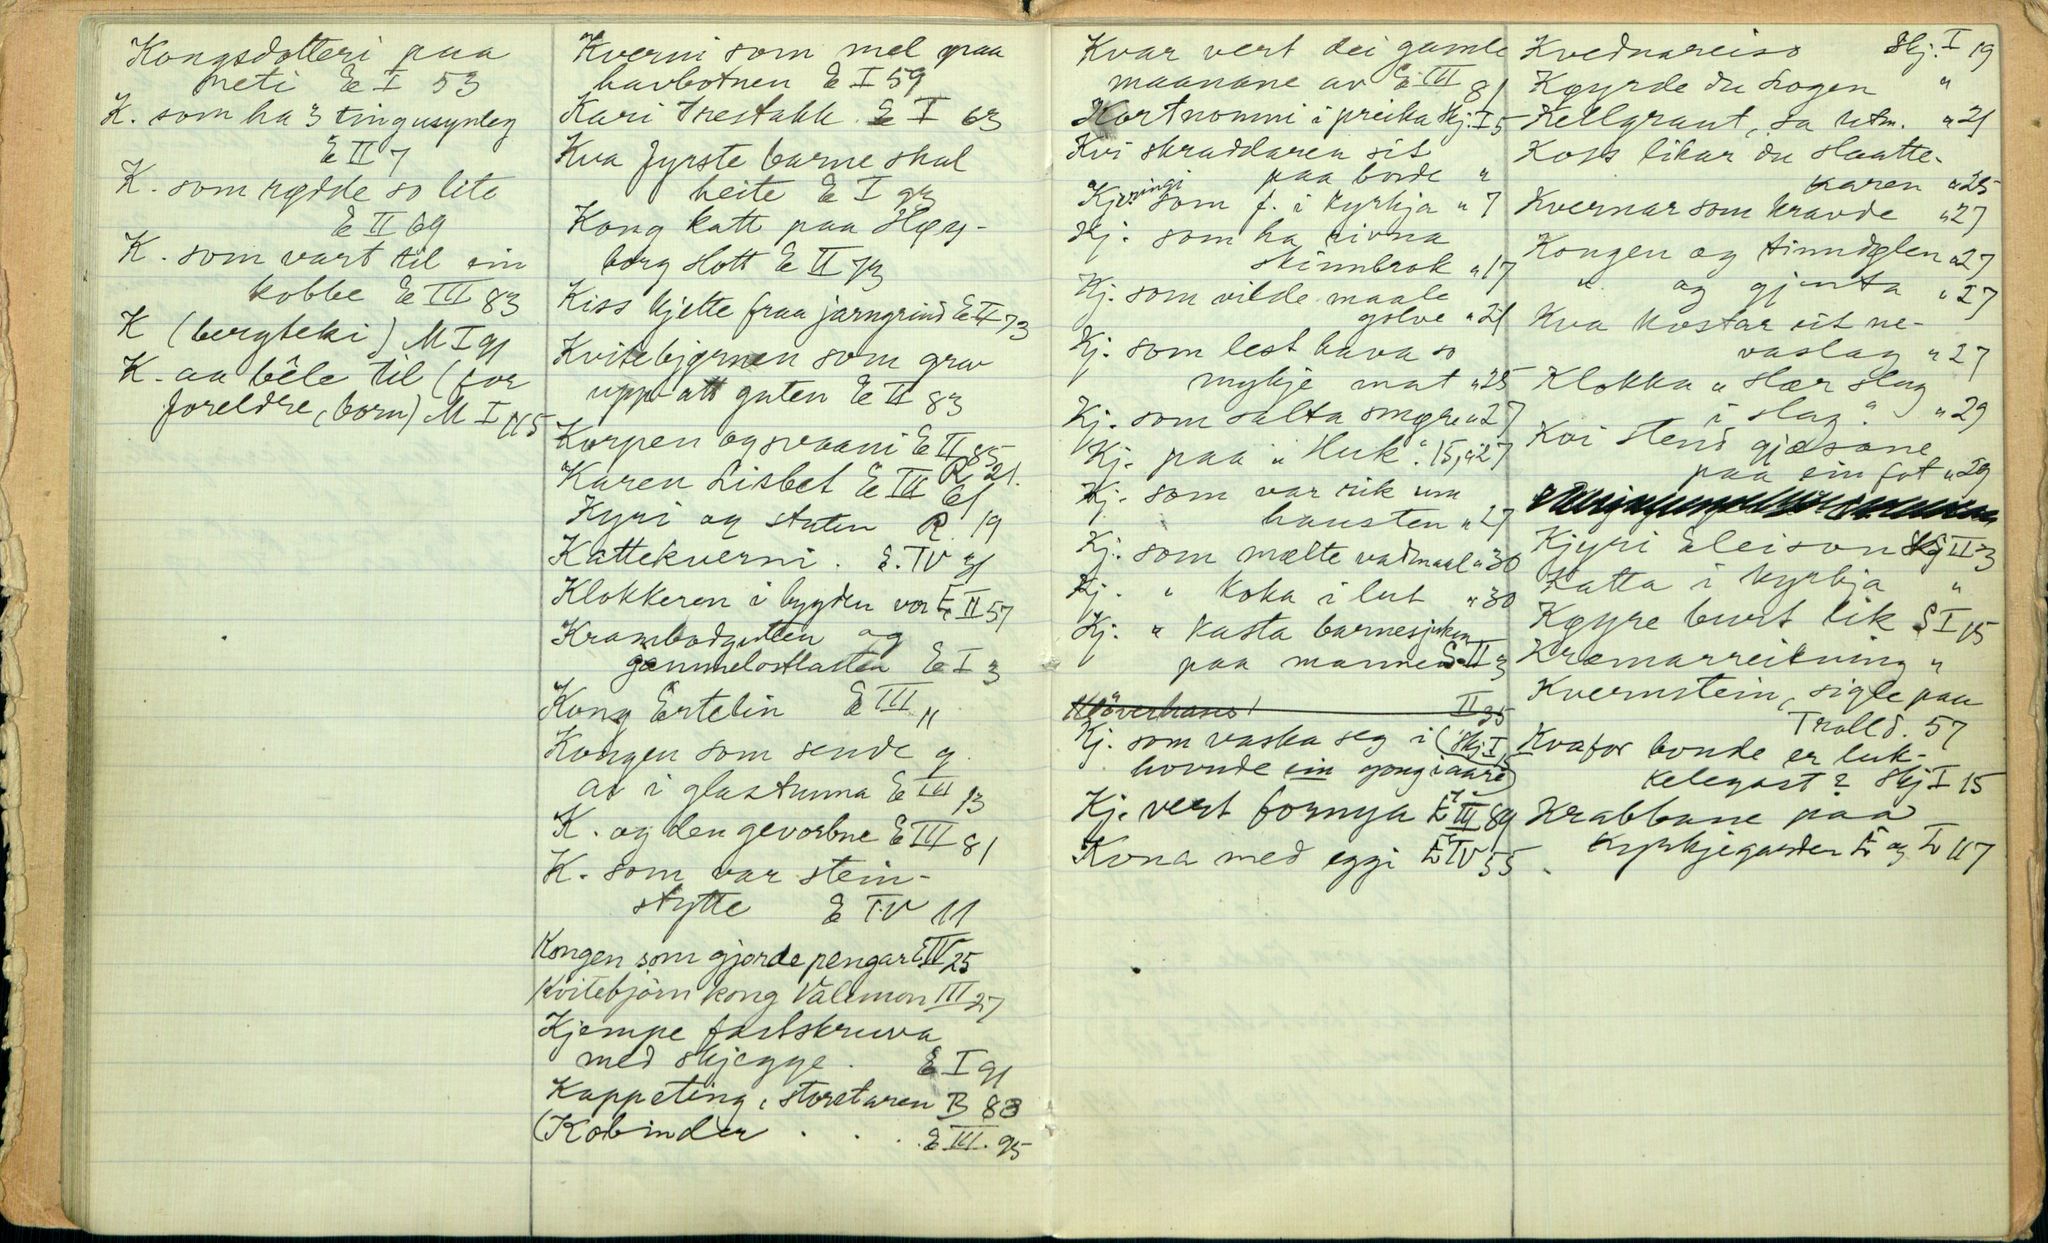 Kongsdotteri paa
neti E I 53
K. som ha 3 ting usynleg
E II 7
K. som rødde so lite
E II 69
K. som vart til ein
kobbe E III 83
K (bergteki) M I 91
K. aa bêle til (for
foreldre, born) M I 115
Kverni som mel paa
havbotnen E I 59
Kari Trestakk E I 63
Kva fyrste barne skal
heite E I 93
Kong katt paa Høy-
borg slott E II 73
Kiss kjette fraa jarngrind E II 73
Kvitebjørnen som grav
upp att guten E II 83
Korpen og svaani E II 85
Karen Lisbet E III 61 R 21.
Kyri og stuten R. 19
Kattekverni . E. IV 31
Klokkeren i bygden vor E II 57
Krambodguten og
gammelostlasten E I 3
Kong Ertelin E III 11
Kongen som sende g.
av i glastunna E III 13
K. og den gevorbne E III 81
K. som var stein-
stytte E IV 11
Kongen som gjorde pengar E IV 25
Kvitebjörn kong Valemon III 27
Kjempe fastskruva
med skjegge . E I 91
Kappeting, storetaren B 83
(Kobinder . . . E III. 95
Kvar vert dei gamle
maanane av E III 81
Kortnommi i preika Skj. I 5
Kvi skraddaren sit
paa borde "
Kjeringi som f. i kyrkja " 7
Kj. som ha rivna
skinnbrok " 17
Kj. som vilde maale
golve " 21
Kj. som lest hava so
mykje mat " 25
Kj. som salta smøre " 27
Kj. paa "Huk". 15, " 27
Kj. som var rik um
hausten " 27
Kj. som mælte vadmaal " 30
Kj. " koka i lut " 30
Kj. " kasta barnesjuken
paa mannen S II 3
Klöverhans II 35
Kj. som vaska seg i (Skj. I
hovude ein gong i aare)
Kj. vert fornya E III 89
Kona med eggi E IV 55 .
Kvednareiso Skj. I 19
Køyrde du Logen "
Kellgraut, sa utm. " 21
Koss likar du slaatte-
karen " 25
Kvernar som kravde " 27
Kongen og tinndølen " 27
" og gjenta " 27
Kva kostar eit ne-
vaslag " 27
Klokka " slær slag
i slag " " 29
Kvi stend gjæsane
paa ein fot " 29
Kjyri Eleison Skj II 3
Katta i kyrkja "
Køyre burt lik S I 15
Kræmarreikning "
Kvernstein, sigle paa
Trolld. 57
Kvafor bonde er luk-
kelegast? Skj I 15
Krabbane paa
Kyrkjegarden E og E 117